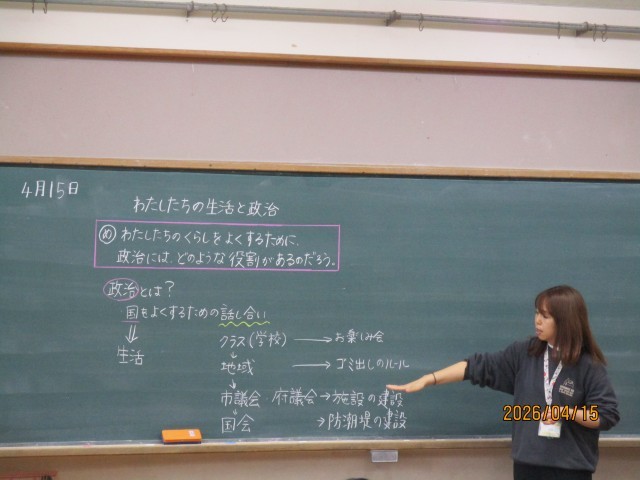 4月15日
わたしたちの生活と政治
め わたしたちのくらしをよくするために、
政治には、どのような役割があるのだろう。
政治とは？
国をよくするための話し合い
⇓
生活
クラス(学校) → お楽しみ会
↓
地域 → ゴミ出しのルール
↓
市議会 府議会 → 施設の建設
↓
国会 → 防潮堤の建設
2026/04/15